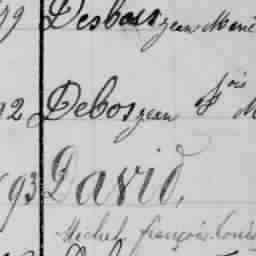 99 Desbois jean Marie
92 Debos jean fois M
93 David,
Michel françois Louis